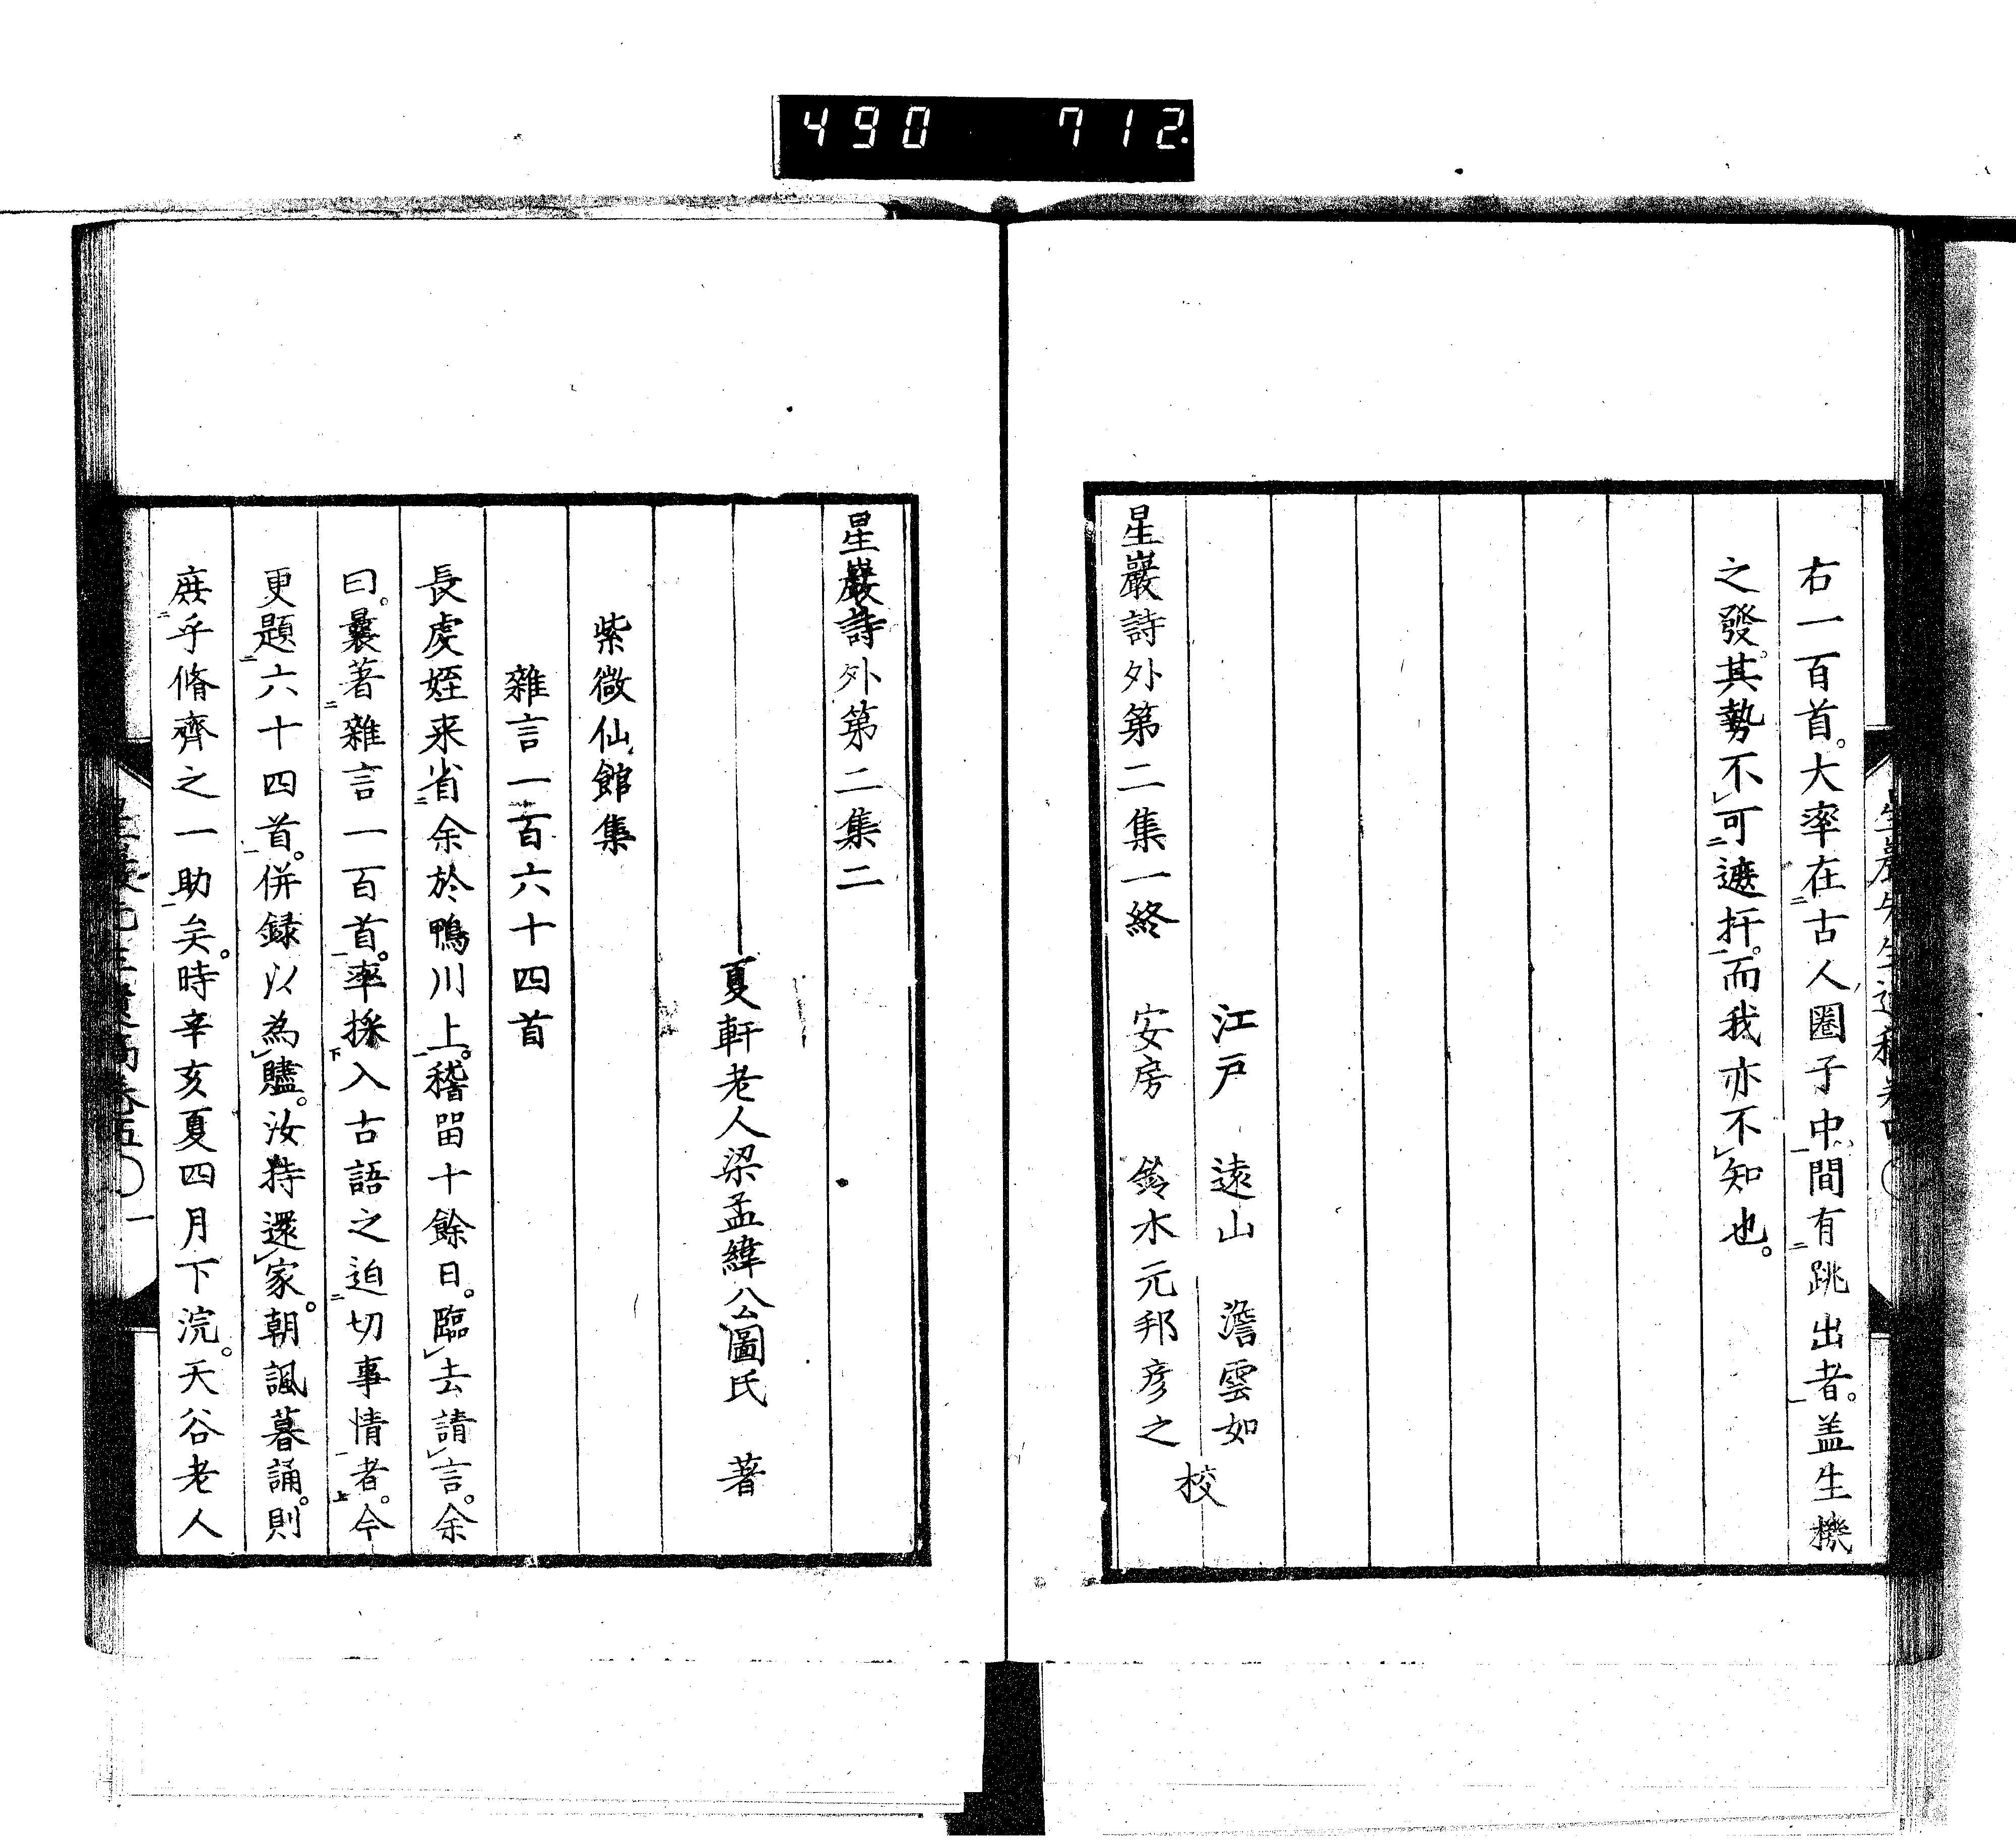 490 712.
右一百首。大率在古人圈子中、間有跳出者。盖生機
之發。其勢不可遮扞。而我亦不知也。
江戸 遠山 澹雲如
安房 鈴木元邦彦之
校
星巖詩外第二集一終
星巖詩外第二集二
夏軒老人梁孟緯公圖氏 著
紫微仙館集
雜言一百六十四首
長虔姪来省余於鴨川上。稽畱十餘日。臨去請言。余
曰。曩著雜言一百首。率採入古語之迫切事情者。今
更題六十四首。併録以為贐。汝持還家。朝諷暮誦。則
庶乎脩齊之一助矣。時辛亥夏四月下浣。天谷老人